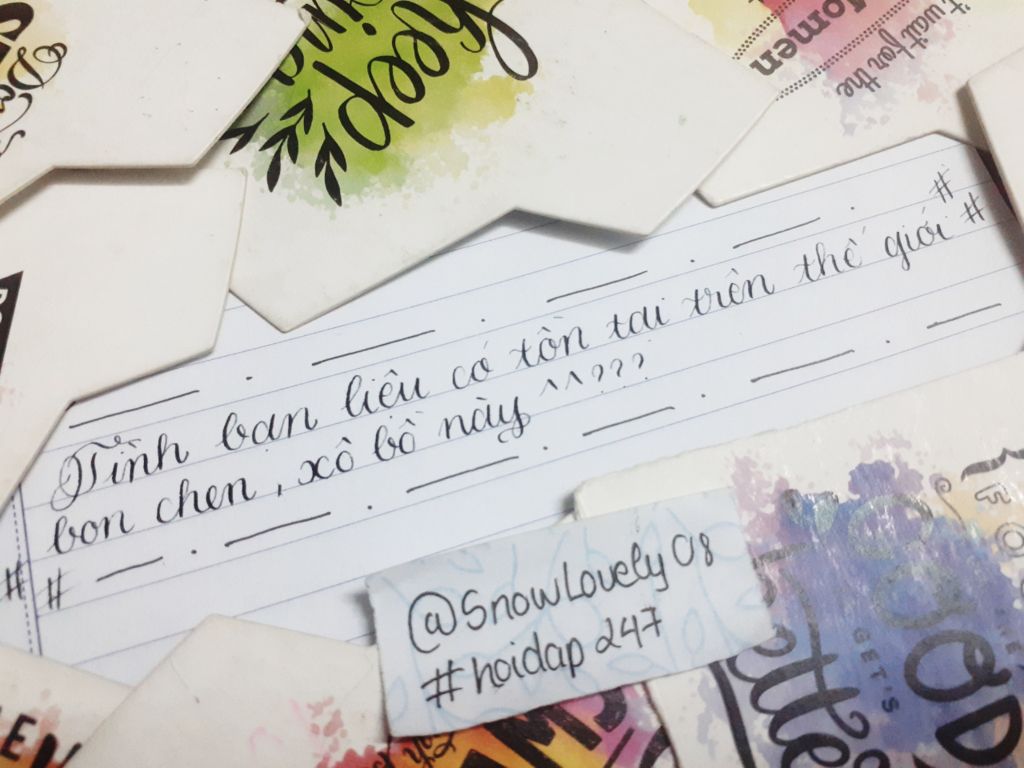 keep
Momen
't wait for the
#
#
Tình bạn liệu có tồn tại trên thế giới
bon chen, xô bồ này ^^???
#
#
@SnowLovely08
#hoidap247
GOOD
GET'S